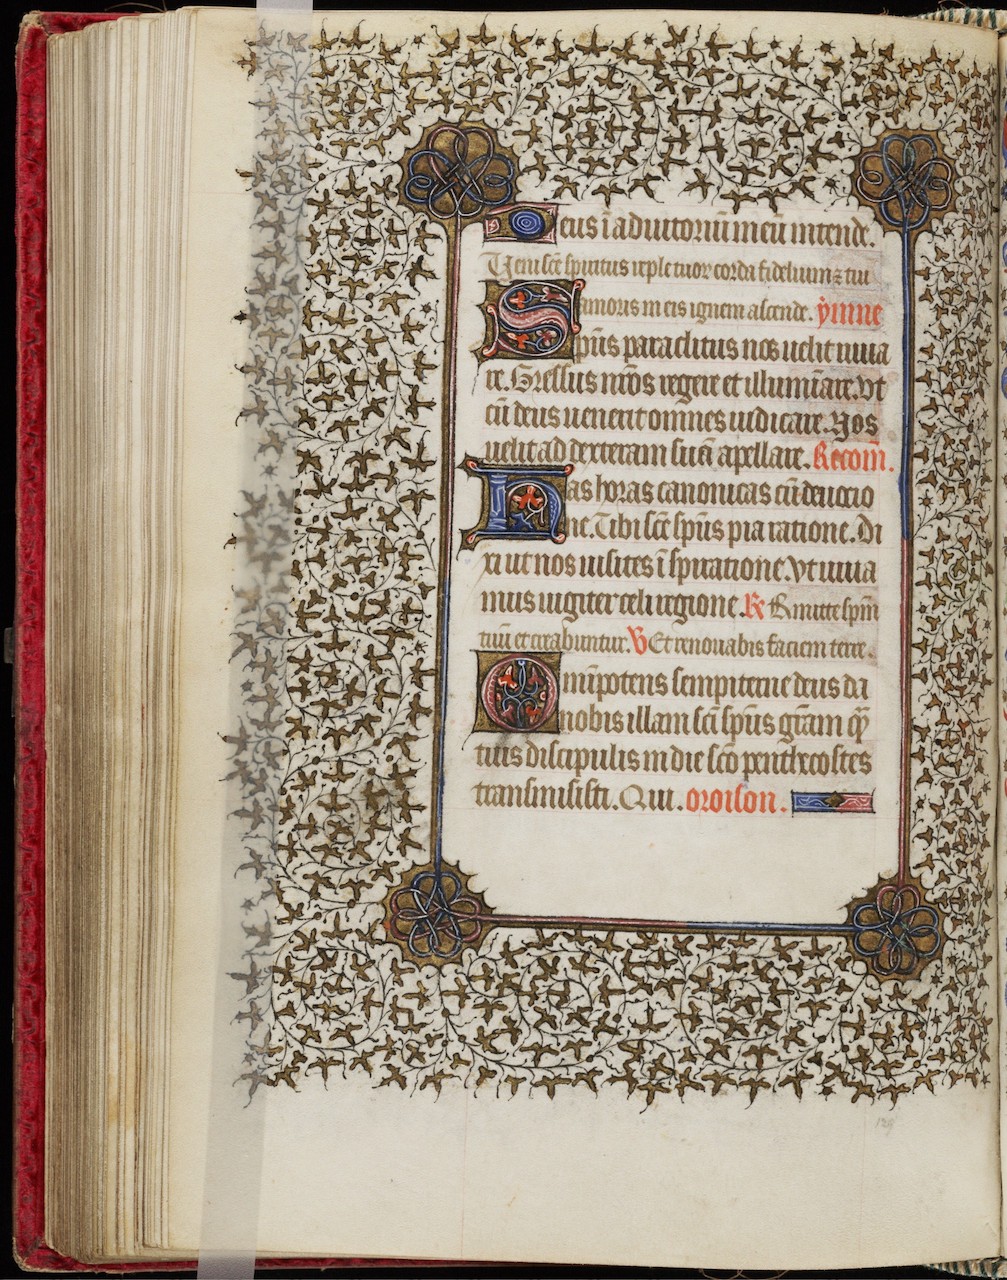 Deus ī adiutoriū meū intende.
Veni sc̄e spiritus reple tuoꝝ corda fidelium ⁊ tui
amoris in eis ignem ascende. ẏmne
Sp̄us paraclitus nos uelit iuua
re. Gressus nr̄os regere et illumīare. Vt
cū deus uenerit omnes iudicare. Nos
uelit ad dexteram suā apellare. Recom̄.
Has horas canonicas cū deuocio
ne. Tibi sc̄e sp̄us pia ratione. Di
xi ut nos uisites īspiratione. Vt uiua
mus iugiter celi regione. ℟ Emitte sp̄m
tuū et creabuntur. ℣ Et renouabis faciem terre.
Omīpotens sempiterne deus da
nobis illam sc̄i sp̄us gr̄am qͣ̄
tuis discipulis in die sc̄o penthecostes
transmisisti. Qui. oroison.
129